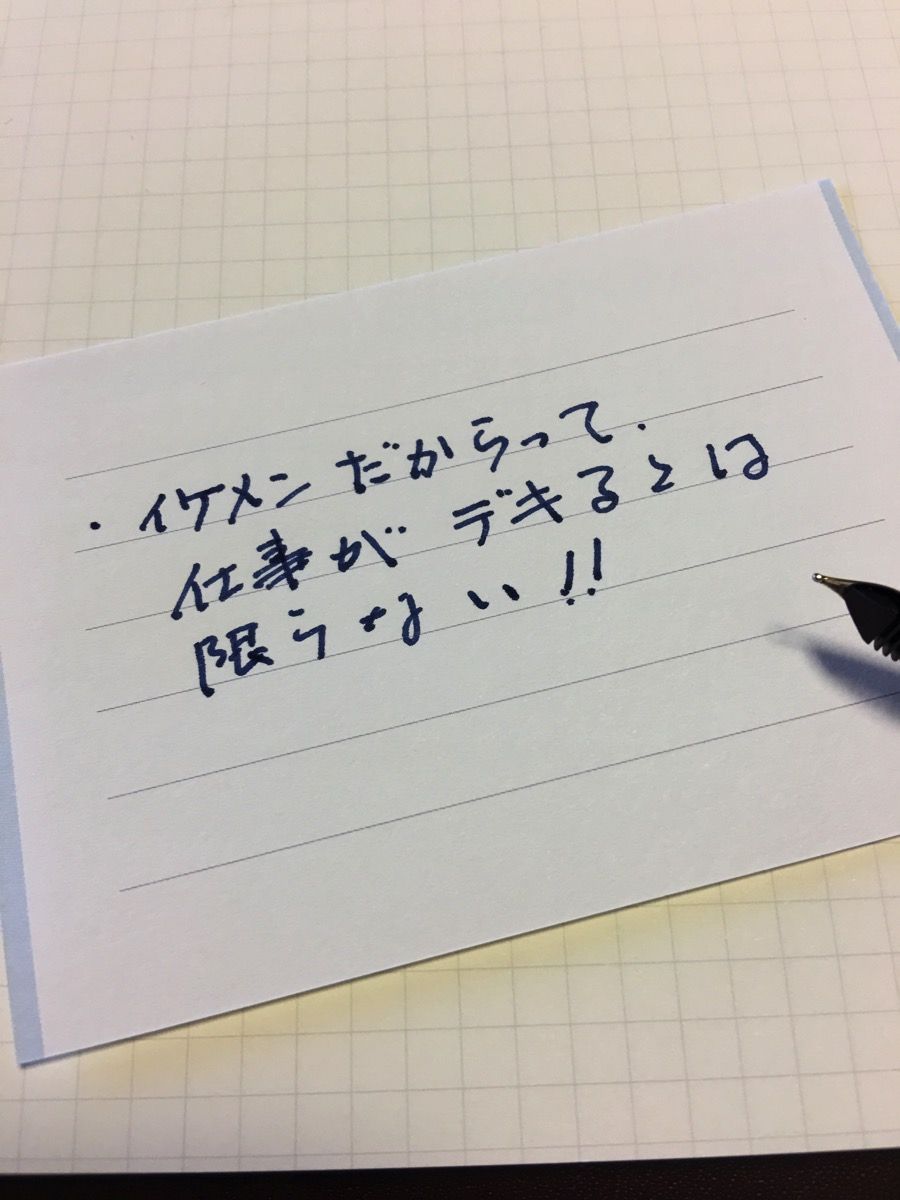 ・イケメンだからって.
仕事がデキるとは
限らない!!